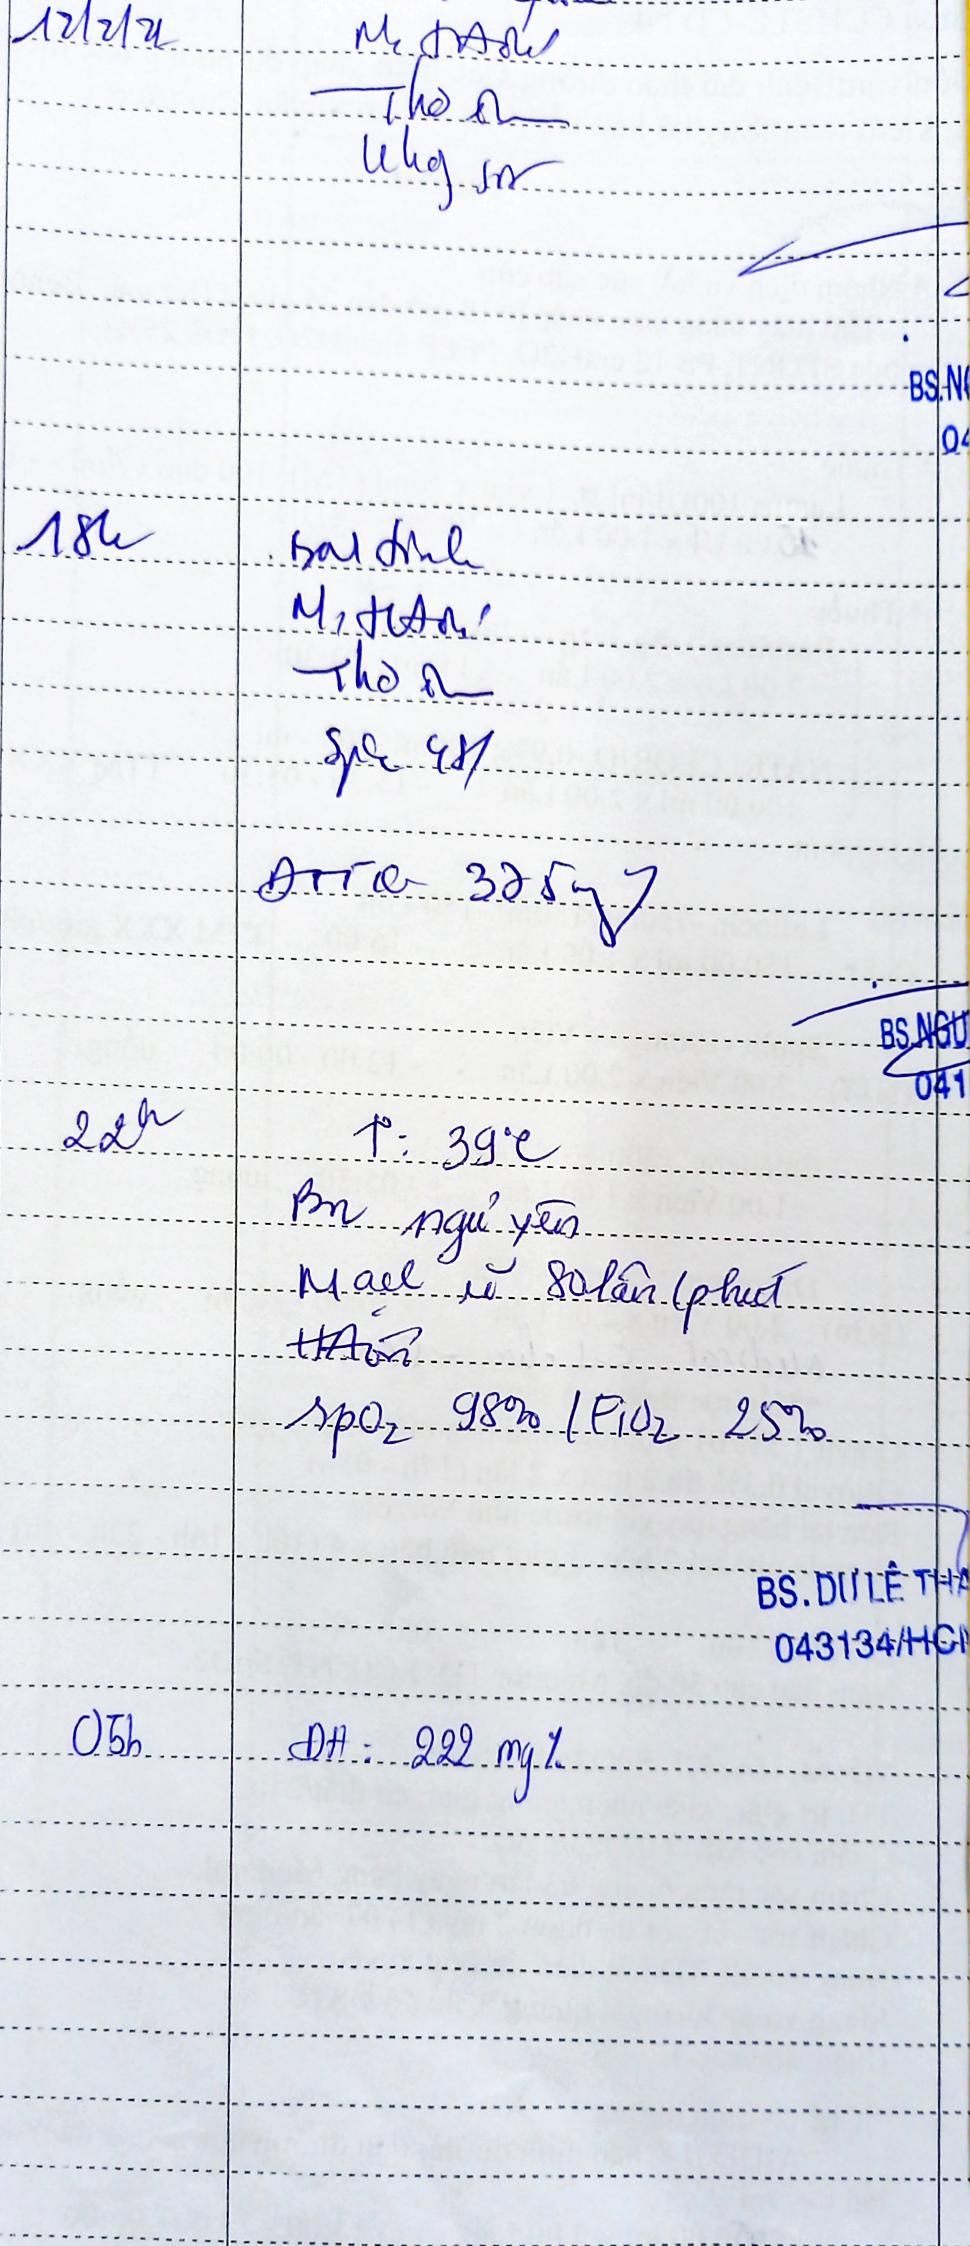 12/2/2
M, HA ổn
Thở êm
Khg sốt
BS.NG
04
18h
BN tỉnh
M, HA ổn
Thở êm
SpO2 98%
325mg
BS.NGU
041
22h
T°: 39°C
BN ngủ yên
Mạch rõ 80 lần/phút
HA ổn
SpO2 98% / FiO2 25%
BS. DƯ LÊ THA
043134/HCM
05h
ĐH: 222 mg%